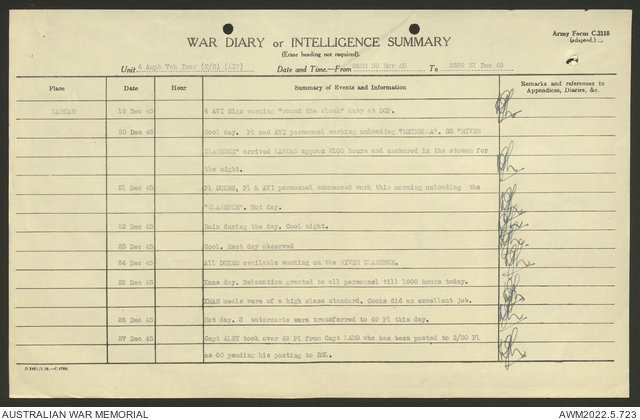 WAR DIARY or INTELLIGENCE SUMMARY
(Erase heading not required).
Army Form C.2118
(adapted.)
Unit 4 Amph Veh Tmsr (T/S) (AIF) Date and Time.—From 2400 30 Nov 45 To 2359 31 Dec 45
Place Hour Summary of Events and Information Remarks and references to
Appendices, Diaries, &c.
LABUAN 19 Dec 45 4 AVI Sigs working "round the clock" duty at DOP.
20 Dec 45 Cool day. Pl and AVI personnel working unloading SS "RIVER
CLARENCE" arrived LABUAN approx 0100 hours and anchored in the stream for
the night.
21 Dec 45 Pl DUKWS, Pl & AVI personnel commenced work this morning unloading the
"CLARENCE". Hot day.
22 Dec 45 Rain during the day. Cool night.
23 Dec 45 Cool. Rest day observed
24 Dec 45 All DUKWS available working on the RIVER CLARENCE.
25 Dec 45 Xmas day. Relaxation granted to all personnel till 1600 hours today.
XMAS meals were of a high class standard. Cooks did an excellent job.
26 Dec 45 Hot day. 3 watercarts were transferred to 49 Pl this day.
27 Dec 45 Capt ALEY took over 49 Pl from Capt LADD who has been posted to 2/20 Pl
as OC pending his posting to
AUSTRALIAN WAR MEMORIAL AWM2022.5.723